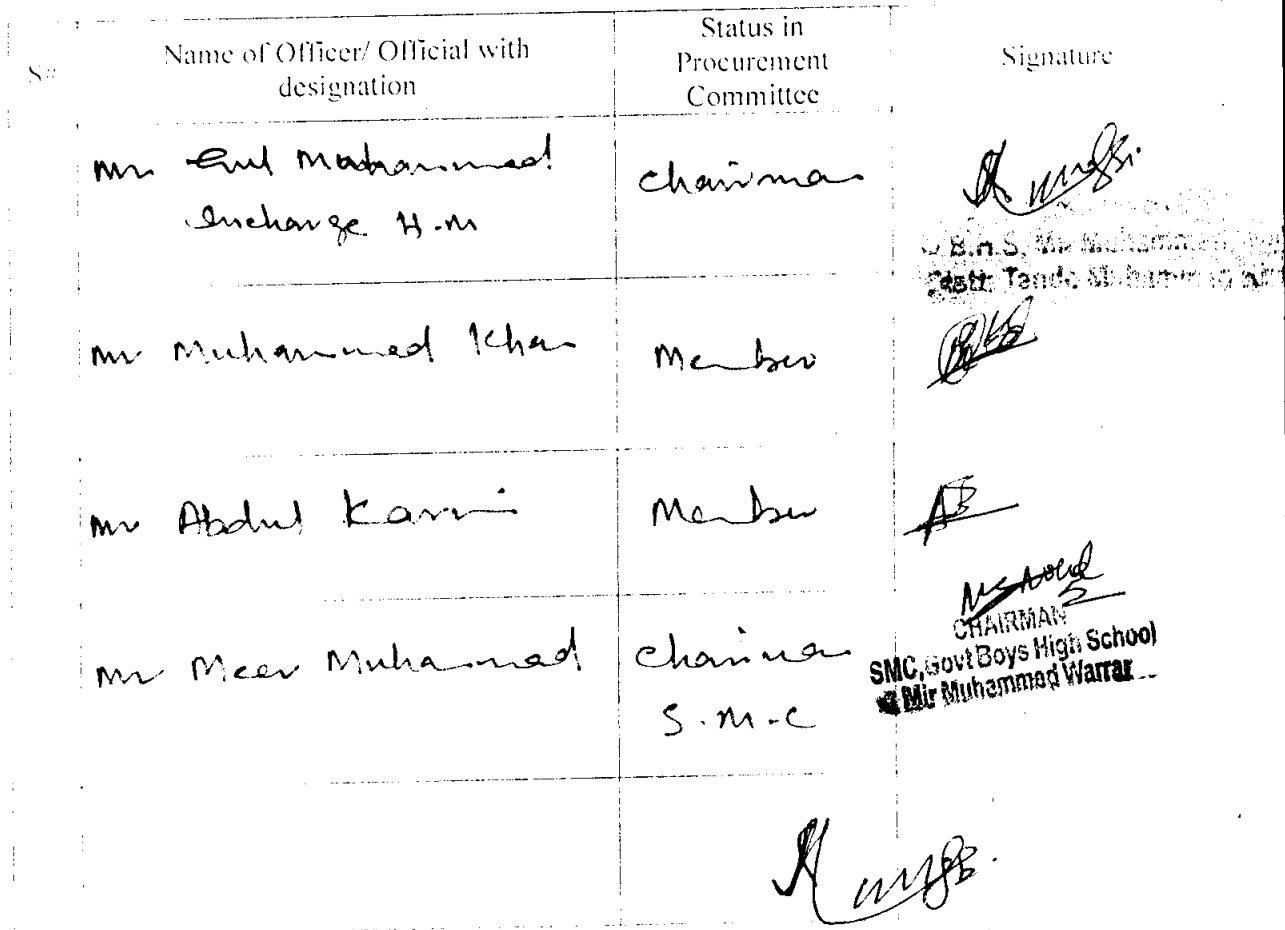 S#
Name of Officer/ Official with
designation
Status in
Procurement
Committee
Signature
Mr Gul Mohammad
Incharge H.M
Chairman
B.H.S, Mir Muhammad
Distt: Tando Muhammad
Mr Muhammad Khan
Member
Mr Abdul Karim
Member
Mr Meer Muhammad
Chairman
S.M.C
CHAIRMAN
SMC, Govt Boys High School
Mir Muhammad Warrar